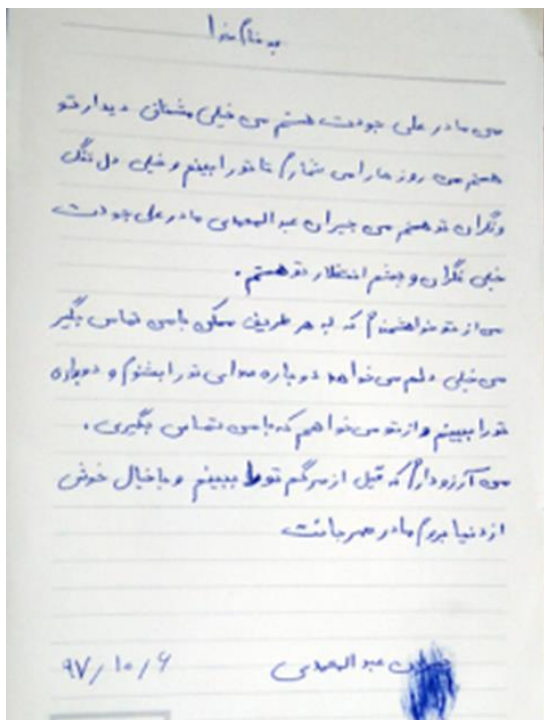 به نام خدا
من مادر علی جودت هستم من خیلی مشتاق دیدار تو
هستم من روزها را می شمارم تا تو را ببینم و خیلی دل تنگ
و نگران تو هستم من جیران عبدالمهدی مادر علی جودت
خیلی نگران و چشم انتظار تو هستم.
من از تو خواهشمندم که به هر طریق ممکن با من تماس بگیر
من خیلی دلم می خواهد دوباره صدای تو را بشنوم و دوباره
تو را ببینم و از تو می خواهم که با من تماس بگیری.
من آرزو دارم که قبل از مرگم تو را ببینم و با خیال خوش
از دنیا بروم مادر مهربانت
عبدالمهدی
۹۷/۱۰/۶